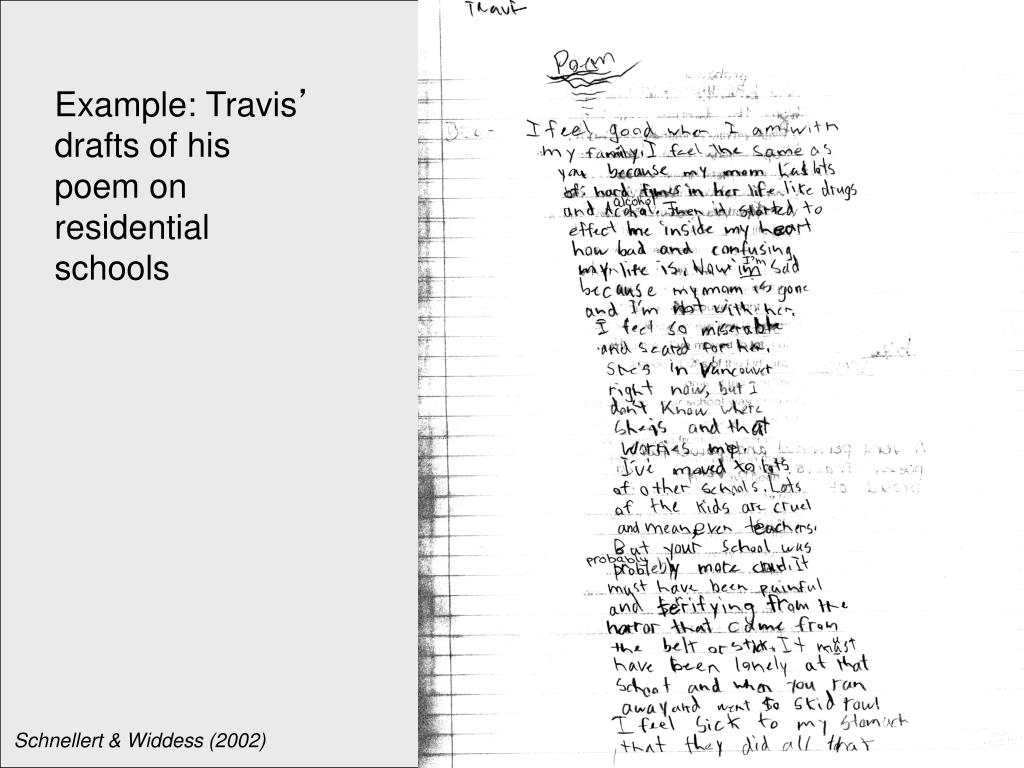 Example: Travis’
drafts of his
poem on
residential
schools
Schnellert & Widdess (2002)
Travi
Poem
I feel good when I am with
my family. I feel the same as
you because my mom had lots
of hard times in her life like drugs
alcohol
and Acohal. Then it started to
effect me inside my heart
how bad and confusing
I'm
my life is. Now im sad
because my mom is gone
and I'm not with her.
I feel so miserable
and scared for her.
She's in Vancouver
right now, but I
don't know where
She is and that
Worries me.
I've moved to lots
of other schools. Lots
of the kids are cruel
and mean, even teachers.
But your school was
probably
problebly more cruel. It
must have been painful
and terifying from the
horror that came from
the belt or stick. It must
have been lonely at that
School and when you ran
away and went to skid row
I feel Sick to my stomach
that they did all that